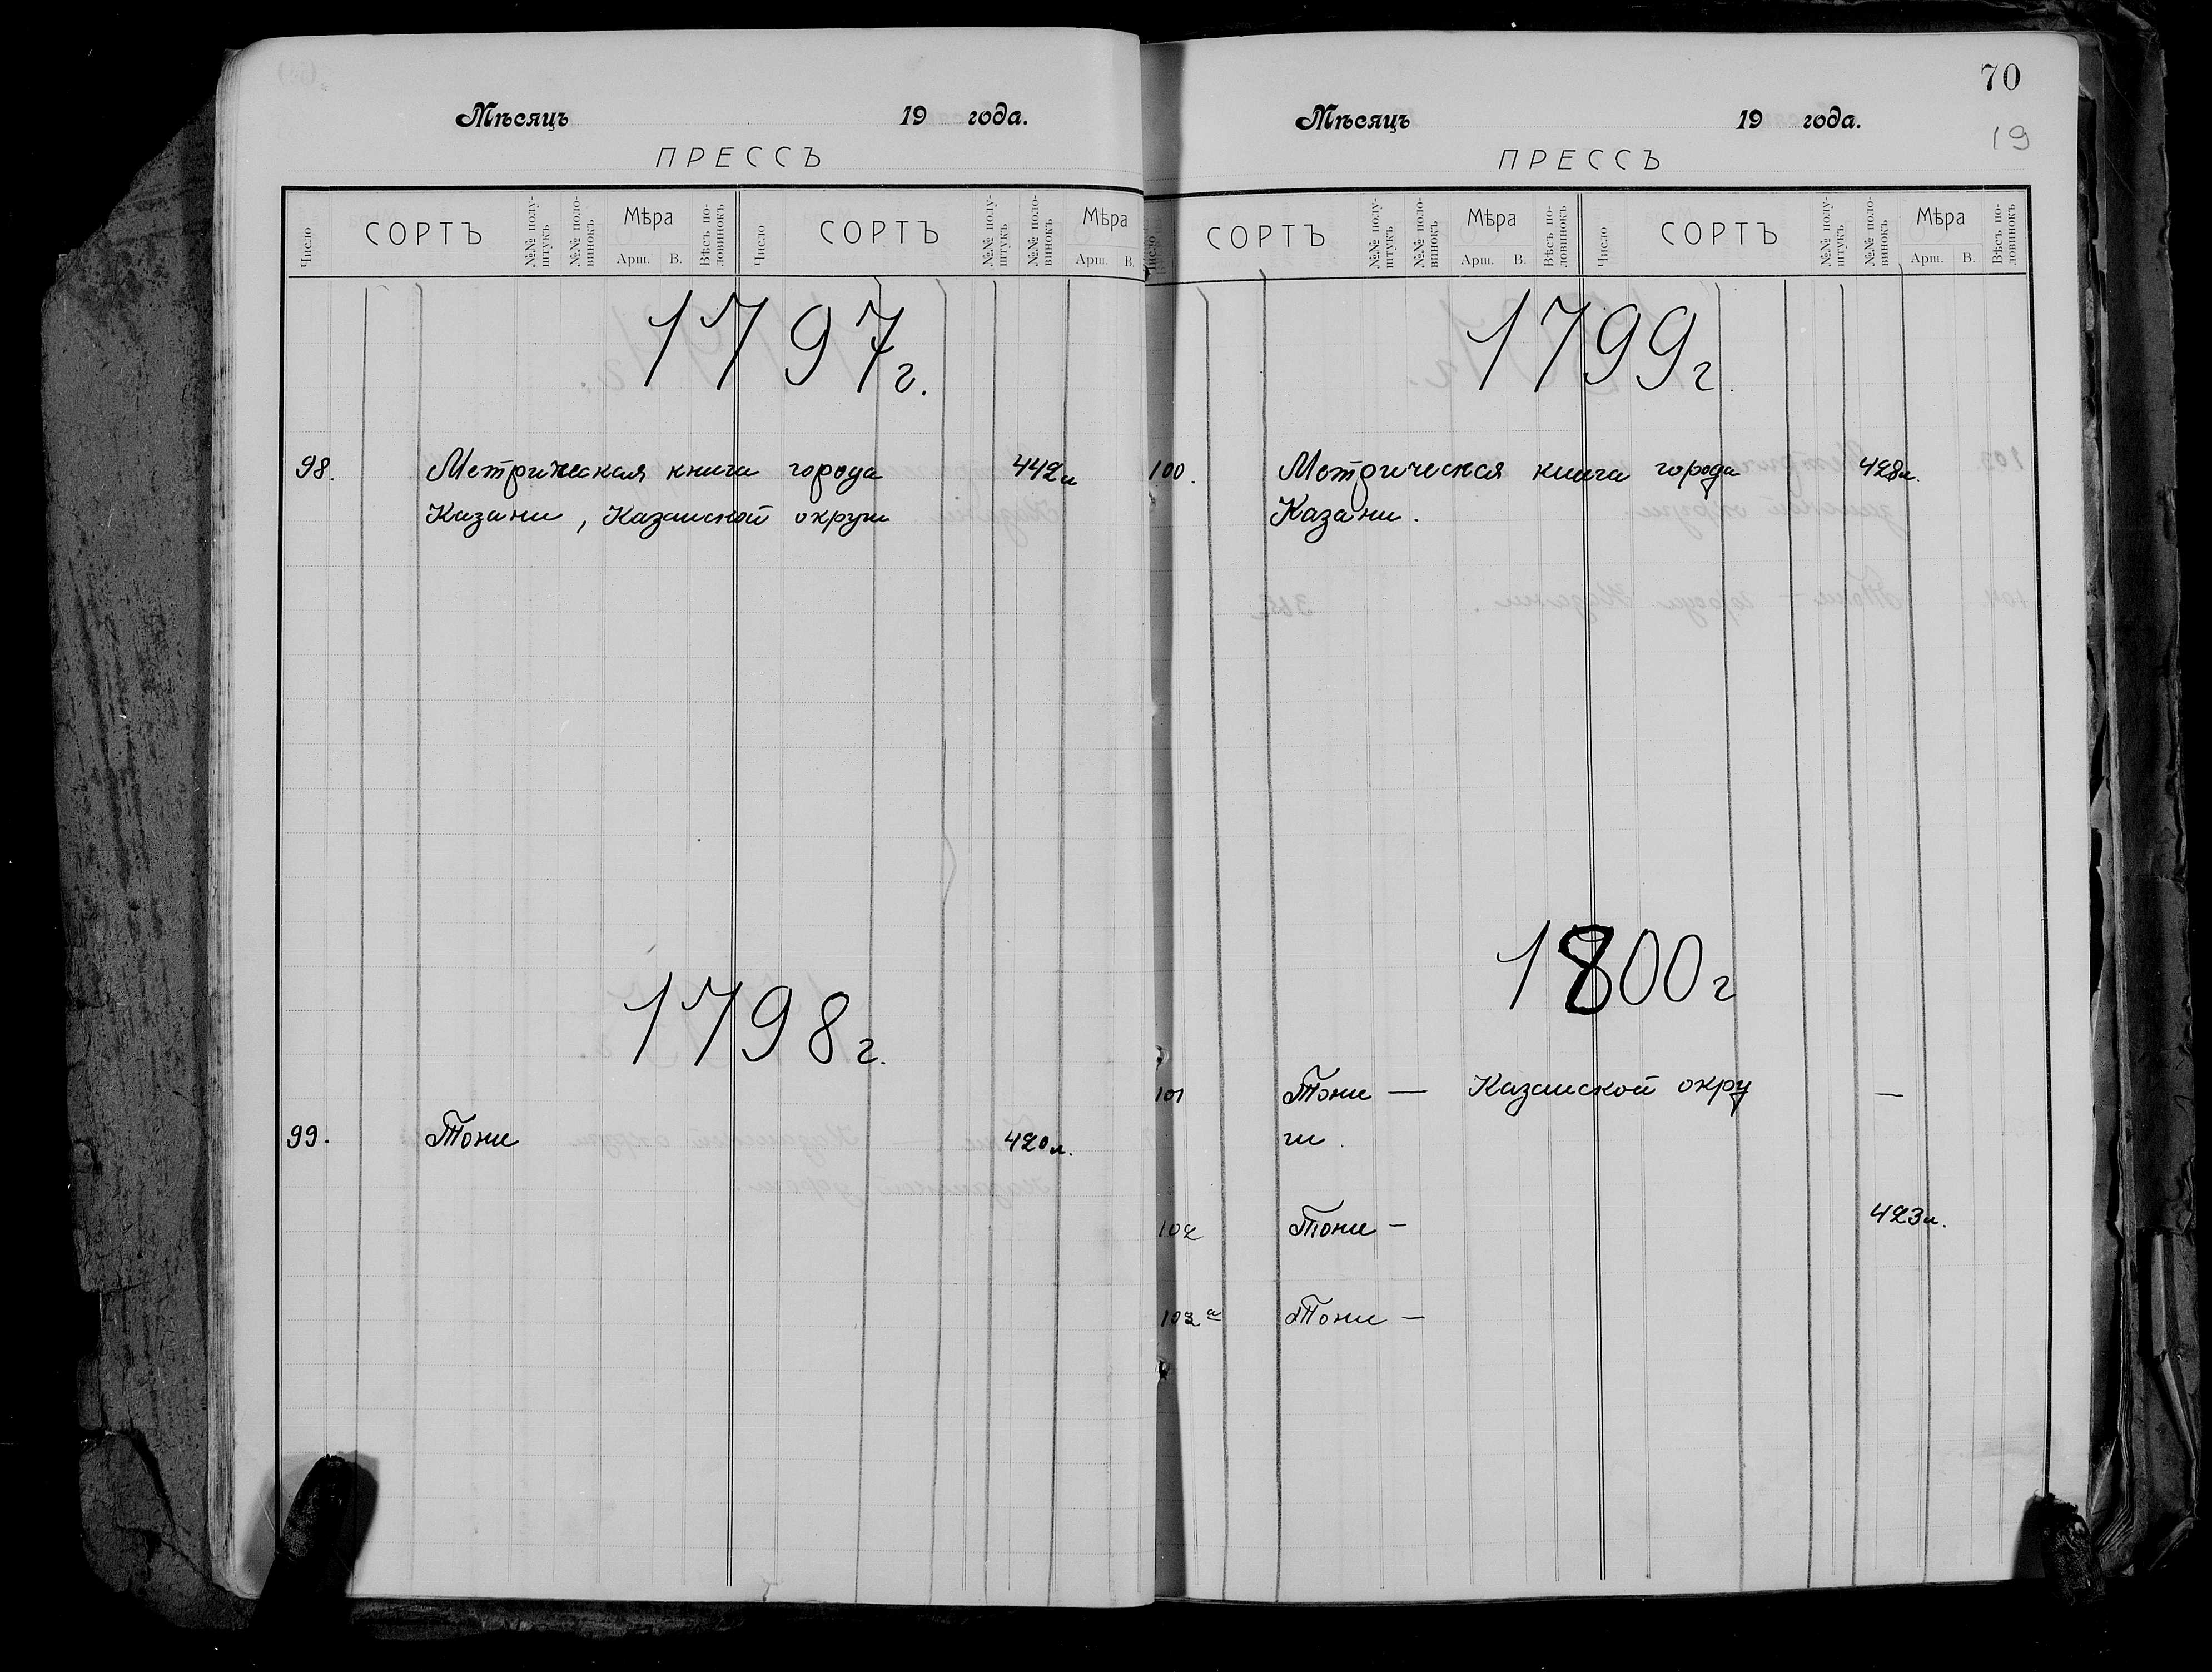 Мѣсяцъ 19 года.
ПРЕССЪ
Число СОРТЪ №№ полу-штукъ №№ поло-винокъ Мѣра Арш. В. Вѣсъ по-ловинокъ Число СОРТЪ №№ полу-штукъ №№ поло-винокъ Мѣра Арш. В.
1797г.
98. Метрическая книга города 442л
Казани, Казанской округи
1798г.
99. Тоже 420л.
70
19
Мѣсяцъ 19 года.
ПРЕССЪ
Число СОРТЪ №№ полу-штукъ №№ поло-винокъ Мѣра Арш. В. Вѣсъ по-ловинокъ Число СОРТЪ №№ полу-штукъ №№ поло-винокъ Мѣра Арш. В. Вѣсъ по-ловинокъ
1799г
100. Метрическая книга города 428л.
Казани.
1800г
101 Тоже — Казанской окру —
ги.
102 Тоже – 423л.
102а Тоже –